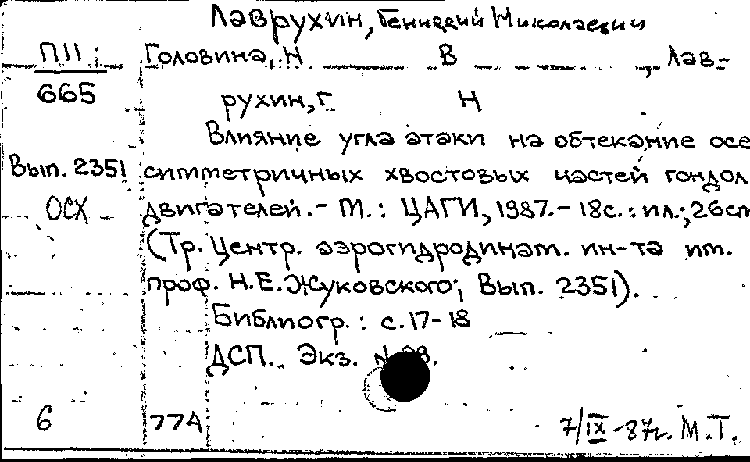 Лаврухин, Геннадий Николаевич
П11 : Головина, Н В , Лав-
665 рухин, Г. Н
Влияние угла атаки на обтекание осе
Вып. 2351 симметричных хвостовых частей гондол
ОСХ двигателей. - М.: ЦАГИ, 1987. - 18с.: ил.; 26см
(Тр. Центр. аэрогидродинам. ин-та им.
проф. Н.Е. Жуковского; Вып. 2351).
Библиогр.: с. 17-18
ДСП. Экз. 
6 77А 7/IX-87г. М.Т.